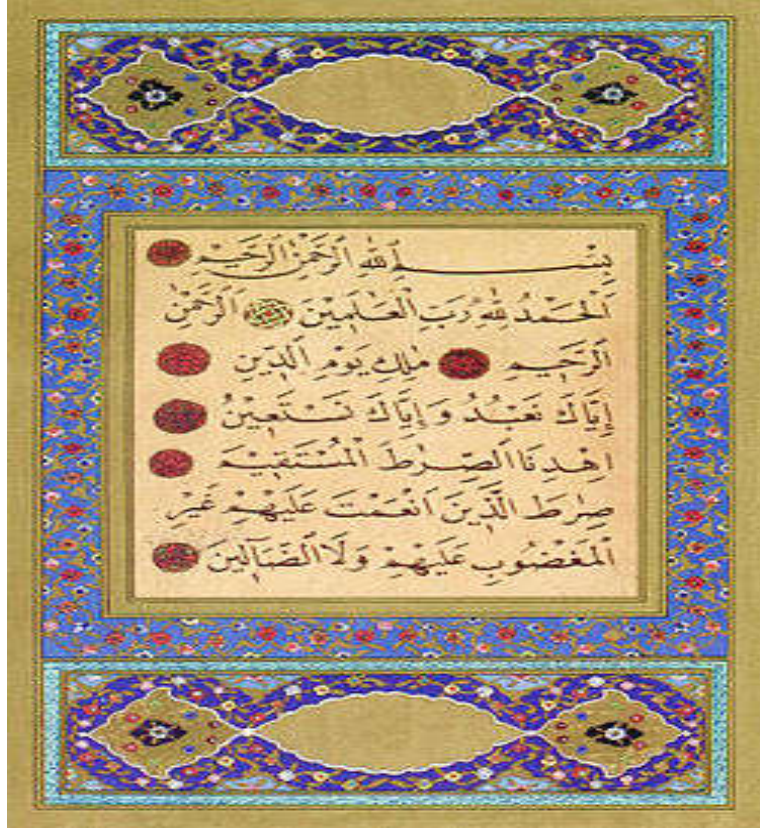 بِسْــــمِ اللهِ الرَّحْمٰنِ الرَّحِيمِ
اَلْحَمْدُ لِلّٰهِ رَبِّ الْعَالَمِينَ الرَّحْمٰنِ
الرَّحِيمِ مٰلِكِ يَوْمِ الدِّينِ
إِيَّاكَ نَعْبُدُ وَإِيَّاكَ نَسْتَعِينُ
اِهْدِنَا الصِّرٰطَ الْمُسْتَقِيمَ
صِرٰطَ الَّذِينَ اَنْعَمْتَ عَلَيْهِمْ غَيْرِ
الْمَغْضُوبِ عَلَيْهِمْ وَلَا الضَّآلِّينَ